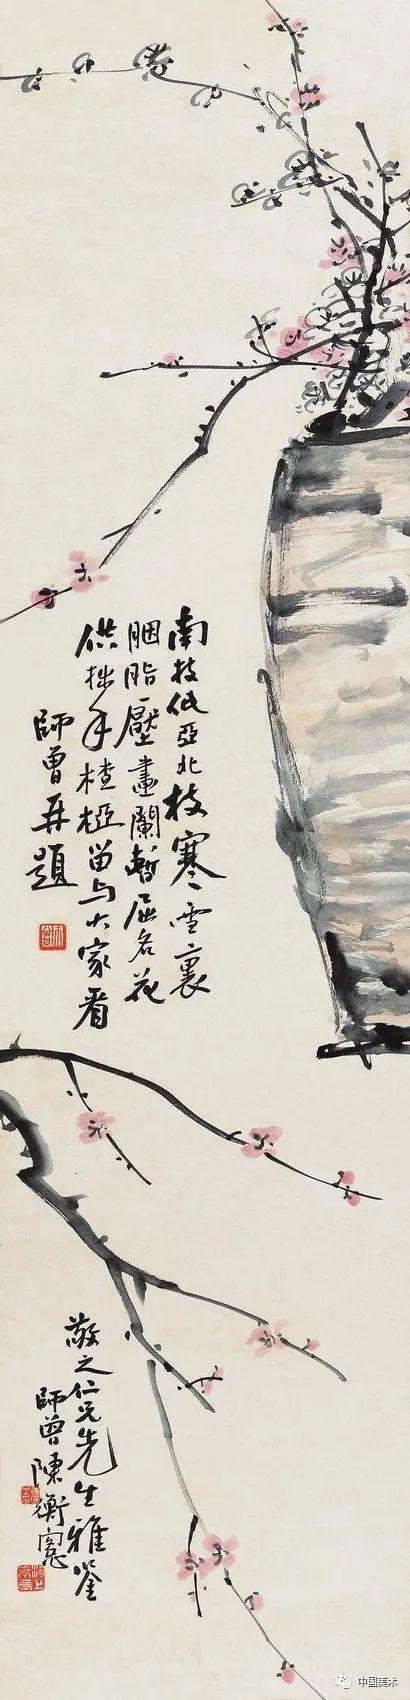 南枝低亞北枝寒雪裏
胭脂壓畫闌暫屈名花
供拙手楂椏留与大家看
師曾再題
師曾
敬之仁兄先生雅鉴
師曾陳衡愙
中国美术